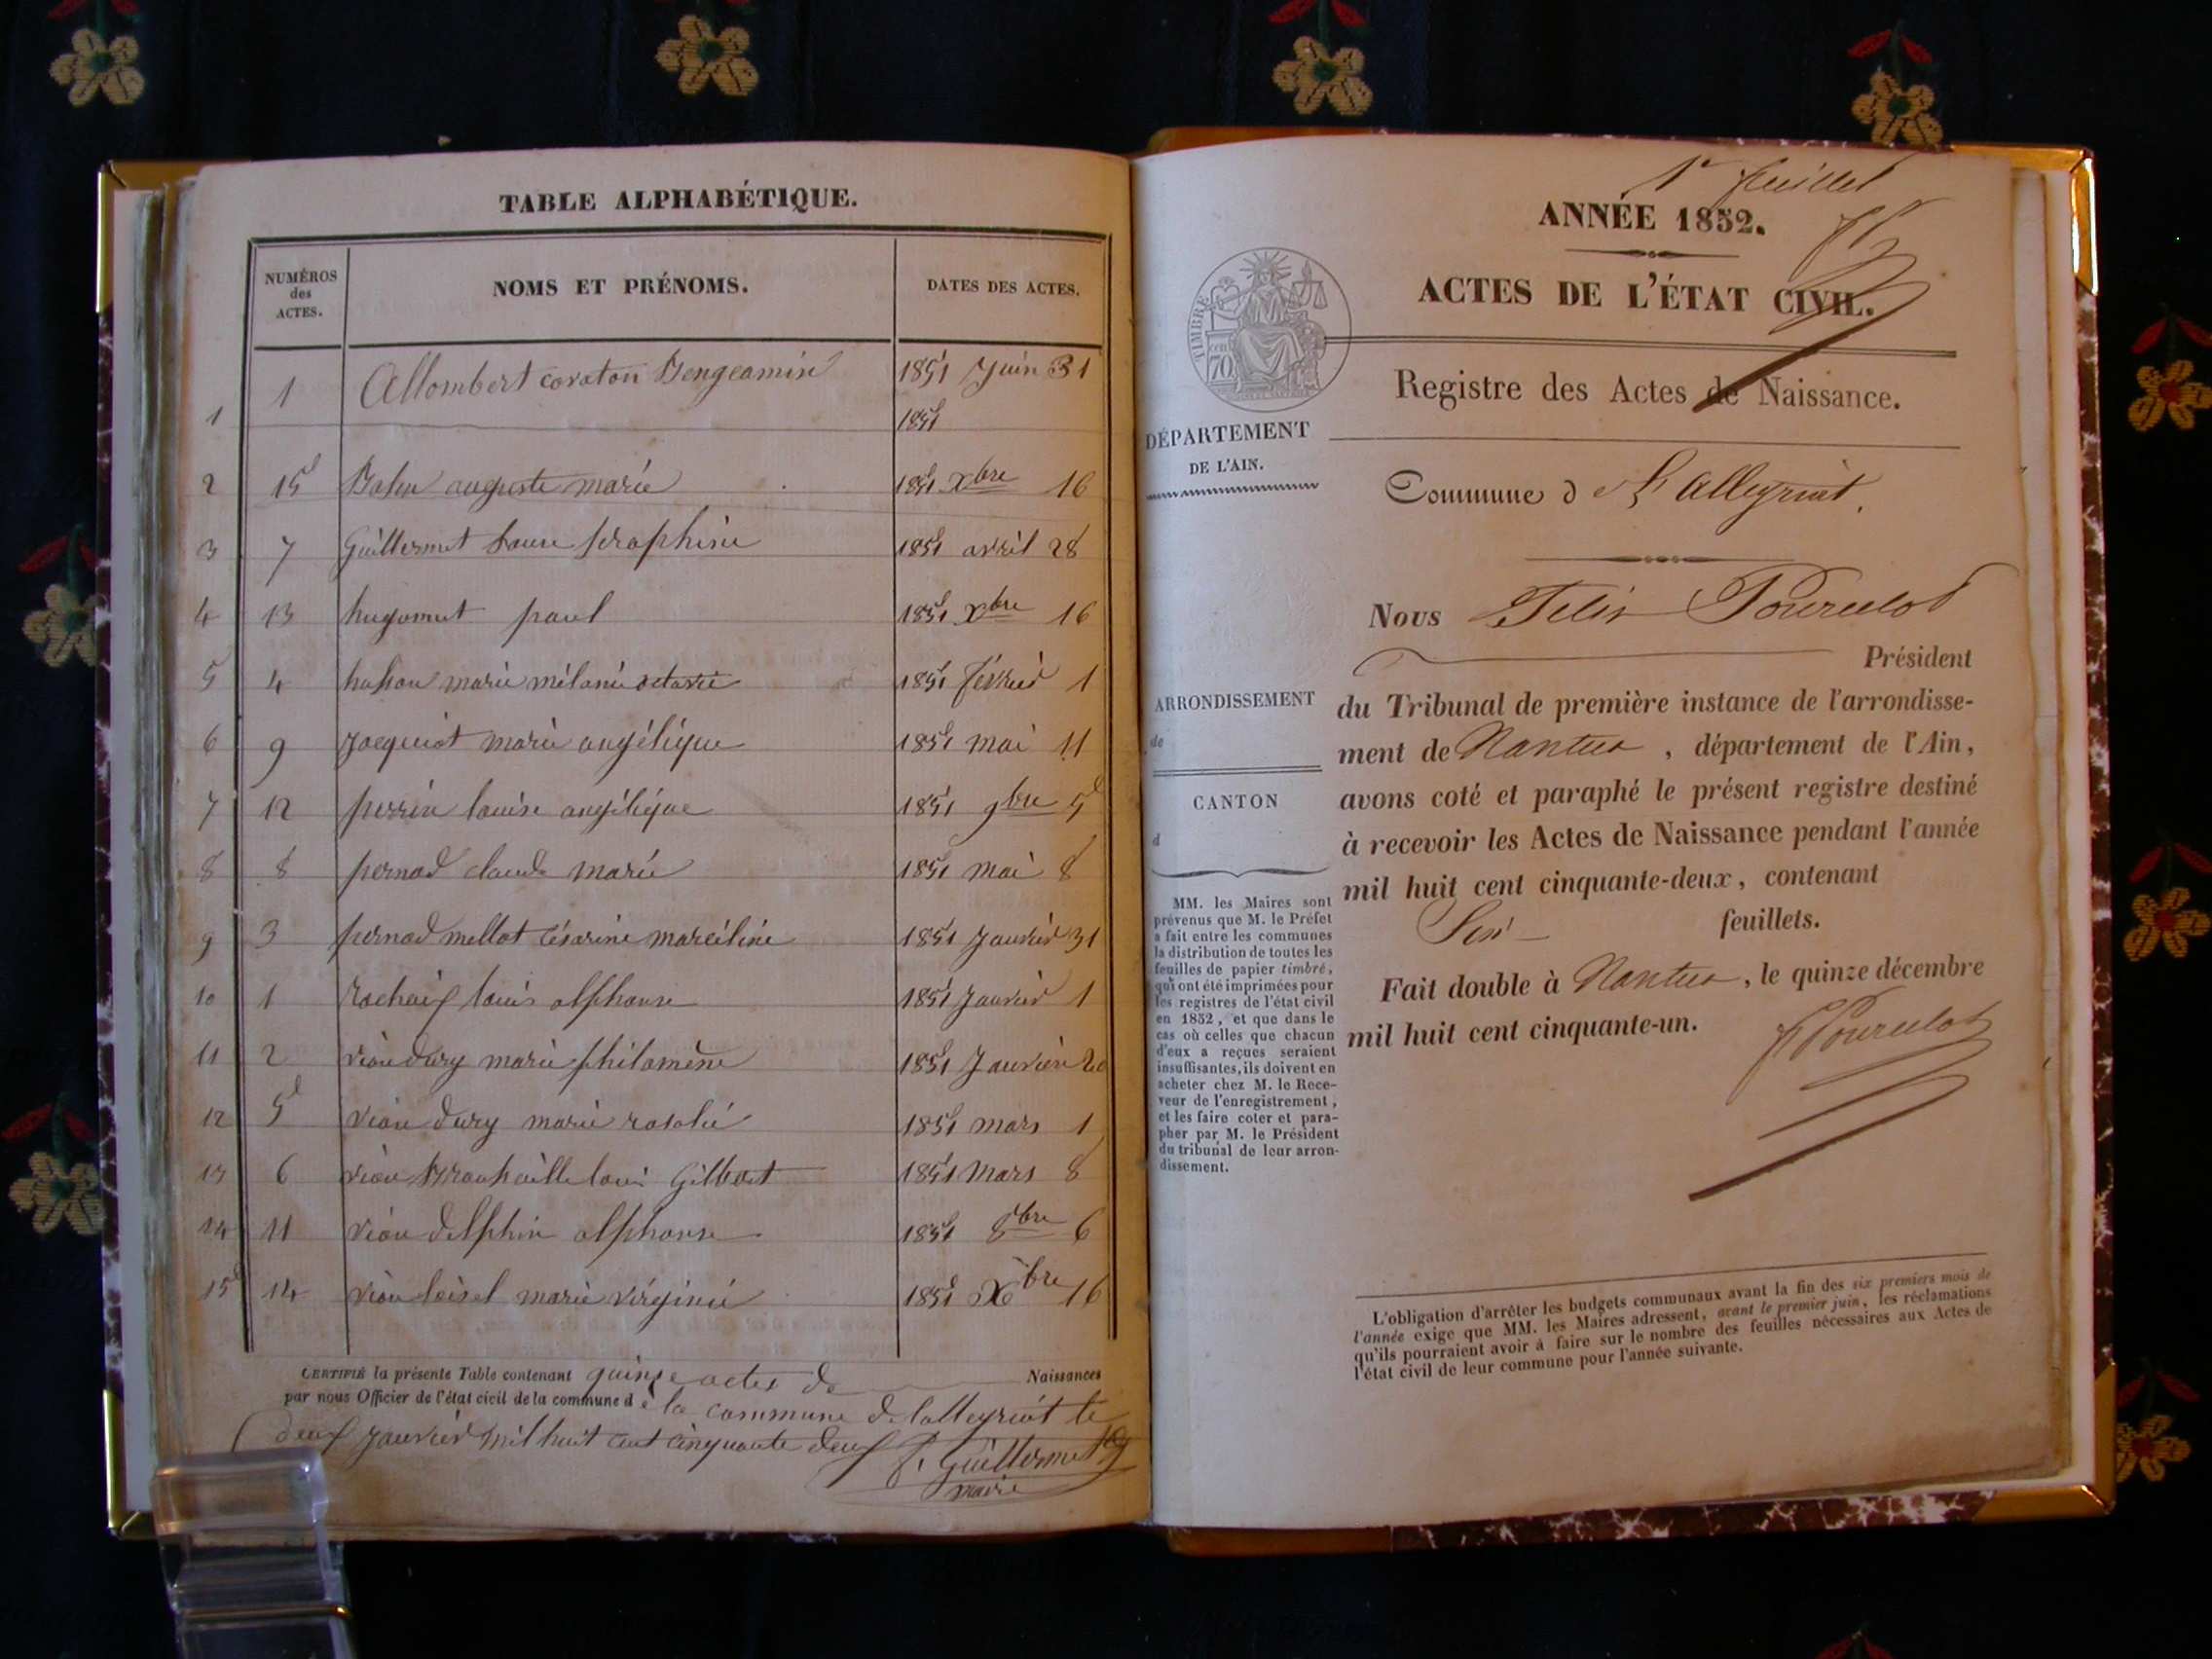 TABLE ALPHABÉTIQUE.
NUMÉROS des ACTES.
NOMS ET PRÉNOMS.
DATES DES ACTES.
1 1 Allombert coraton Bengeamin 1851 Juin 31
1851
2 15 auguste marie 1851 Xbre 16
3 7 Guillermet Seraphine 1851 avril 28
4 13 hugomet paul 1851 Xbre 16
5 4 marie mélanie octavie 1851 février 1
6 9 Jacquiot marie angélique 1851 mai 11
7 12 perrin louise angélique 1851 9bre 5
8 8 pernod claude marie 1851 mai 8
9 3 pernod mellot Césarine marceline 1851 Janvier 31
10 1 Rochaix louis alphonse 1851 Janvier 1
11 2 viou dury marie philomène 1851 Janvier 20
12 5 viou dury marie rosalie 1851 mars 1
13 6 viou Gilbert 1851 Mars 8
14 11 viou delphin alphonse 1851 8bre 6
15 14 viou loisel marie virginie 1851 Xbre 16
CERTIFIÉ la présente Table contenant quinze actes de Naissances
par nous Officier de l'état civil de la commune de la commune de lalleyriat le
deux Janvier mil huit cent cinquante deux f. Guillermet
maire
1er feuillet
ANNÉE 1852.
ACTES DE L'ÉTAT CIVIL.
TIMBRE
70 cen
Registre des Actes de Naissance.
DÉPARTEMENT
DE L'AIN.
Commune de Lalleyriat.
Nous Félix Pourcelot
Président
ARRONDISSEMENT
de
CANTON
d
du Tribunal de première instance de l'arrondisse-
ment de Nantua, département de l'Ain,
avons coté et paraphé le présent registre destiné
à recevoir les Actes de Naissance pendant l'année
mil huit cent cinquante-deux, contenant
Six feuillets.
Fait double à Nantua, le quinze décembre
mil huit cent cinquante-un.
F Pourcelot
MM. les Maires sont
prévenus que M. le Préfet
a fait entre les communes
la distribution de toutes les
feuilles de papier timbré,
qui ont été imprimées pour
les registres de l'état civil
en 1852, et que dans le
cas où celles que chacun
d'eux a reçues seraient
insuffisantes, ils doivent en
acheter chez M. le Rece-
veur de l'enregistrement,
et les faire coter et para-
pher par M. le Président
du tribunal de leur arron-
dissement.
L'obligation d'arrêter les budgets communaux avant la fin des six premiers mois de
l'année exige que MM. les Maires adressent, avant le premier juin, les réclamations
qu'ils pourraient avoir à faire sur le nombre des feuilles nécessaires aux Actes de
l'état civil de leur commune pour l'année suivante.